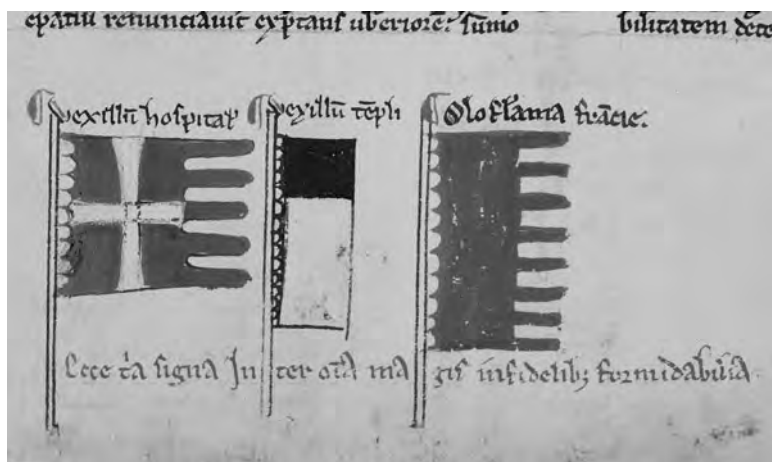 epatiu renunciauit exptans uberiore: sumo bilitatem dete
vexillu hospitaƚ vexillu tepli Oloflama fracie.
Ecce tia signa In ter oia ma gis infidelib; formidabilia.